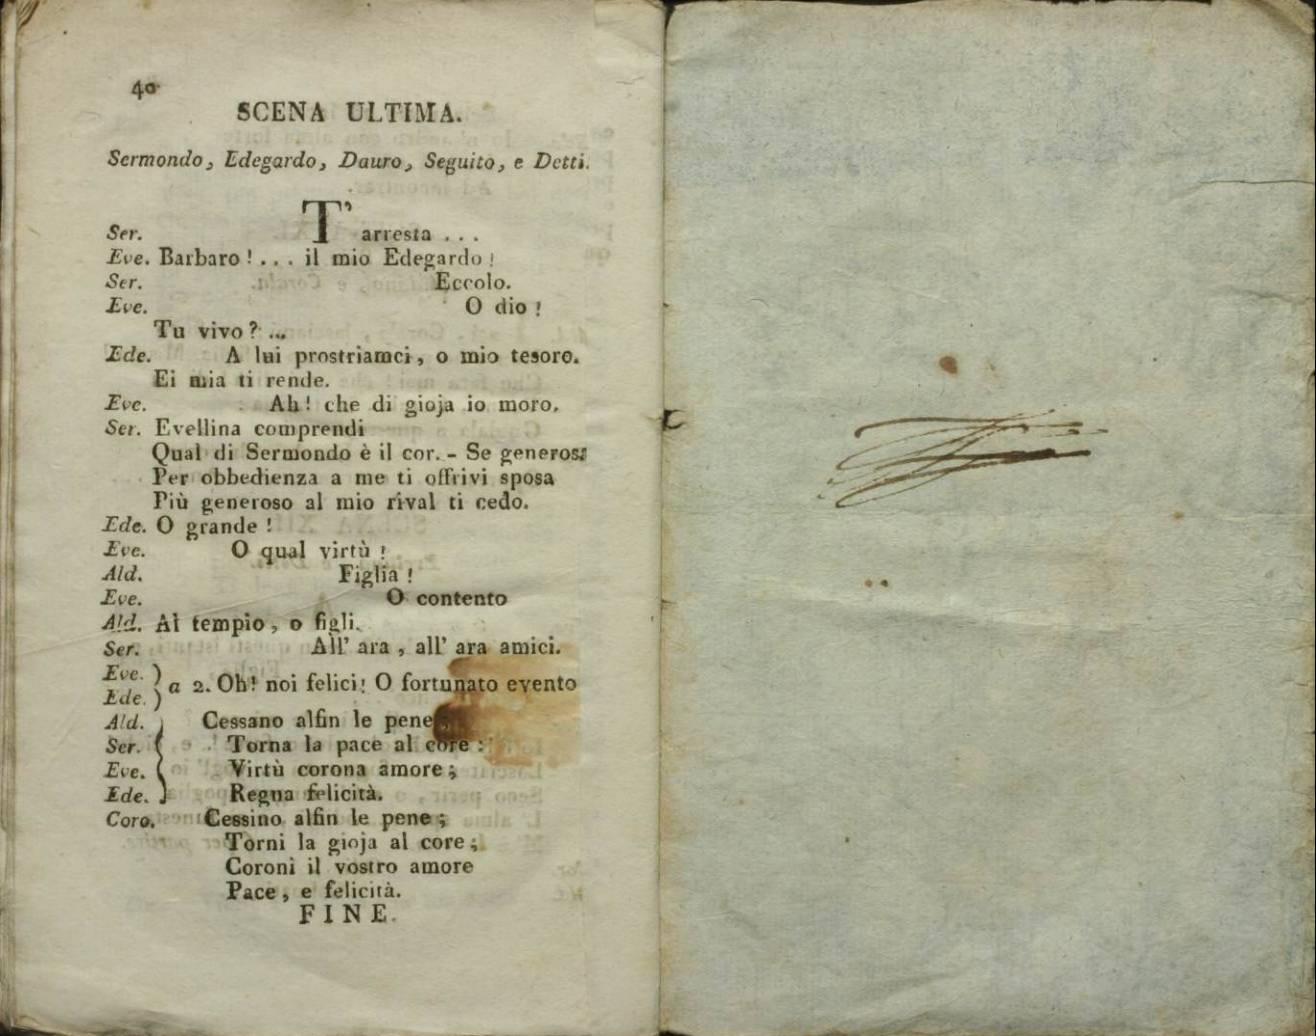 40
SCENA ULTIMA.
Sermondo, Edegardo, Dauro, Seguito, e Detti.
Ser. T' arresta . . .
Eve. Barbaro ! . . . il mio Edegardo !
Ser. Eccolo.
Eve. O dio !
Tu vivo ? ...
Ede. A lui prostriamci, o mio tesoro.
Ei mia ti rende.
Eve. Ah ! che di gioja io moro.
Ser. Evellina comprendi
Qual di Sermondo è il cor. - Se generosa
Per obbedienza a me ti offrivi sposa
Più generoso al mio rival ti cedo.
Ede. O grande !
Eve. O qual virtù !
Ald. Figlia !
Eve. O contento
Ald. Al tempio, o figli.
Ser. All' ara , all' ara amici.
Eve. ) a 2. Oh ! noi felici ! O fortunato evento
Ede. )
Ald. ) Cessano alfin le pene ;
Ser. ( Torna la pace al core :
Eve. ( Virtù corona amore ;
Ede. ) Regna felicità.
Coro. Cessino alfin le pene ;
Torni la gioja al core ;
Coroni il vostro amore
Pace , e felicità.
FINE.